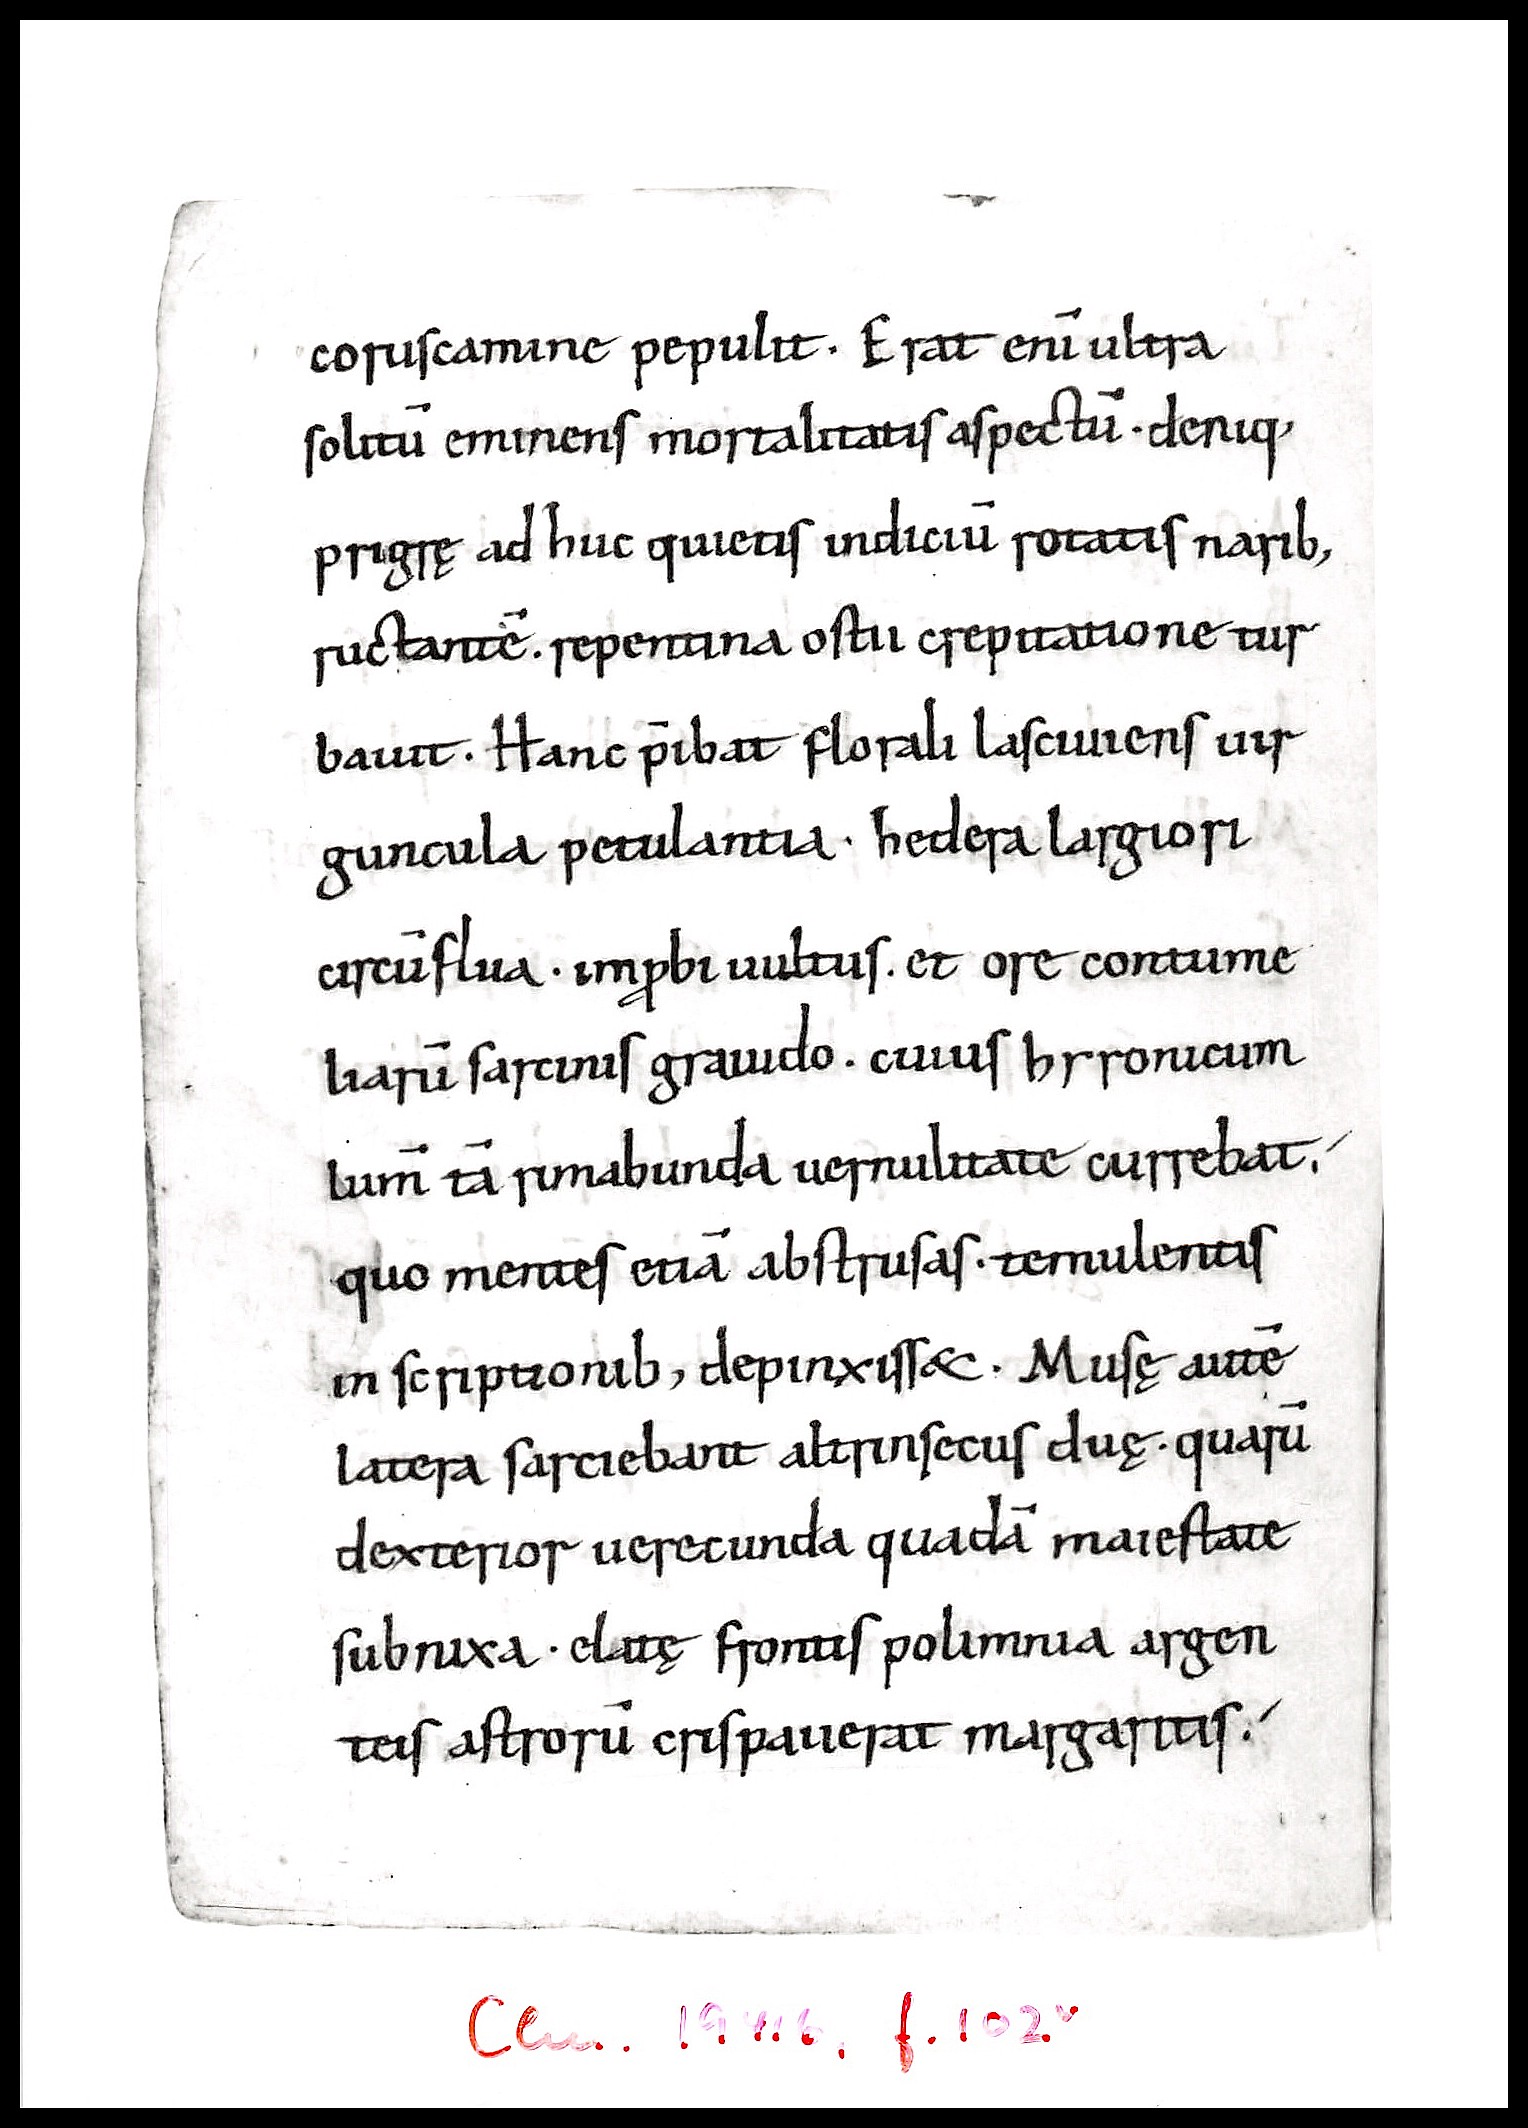 coruscamine pepulit. Erat eni̅ ultra
solitu̅ eminens mortalitatis aspectu̅. deniq,
prigrę ad huc quietis indiciu̅ rotatis narib,
ructante̅. repentina ostii crepitatione tur
bauit. Hanc p̅ibat florali lasciuiens uir
guncula petulantia. hedera largiori
circu̅flua. imꝓbi uultus. et ore contume
liaru̅ sarcinis grauido. cuius hyronicum
lum̅ ta̅ rimabunda uernulitate currebat.
quo mentes etia̅ abstrusas. temulentis
in scriptionib, depinxiss&. Musę aute̅
latera sarciebant altrinsecus duę. quaru̅
dexterior uerecunda quada̅ maiestate
subnixa. elatę frontis polimnia argen
teis astroru̅ crispauerat margaritis.
Clm. 19416, f. 102v